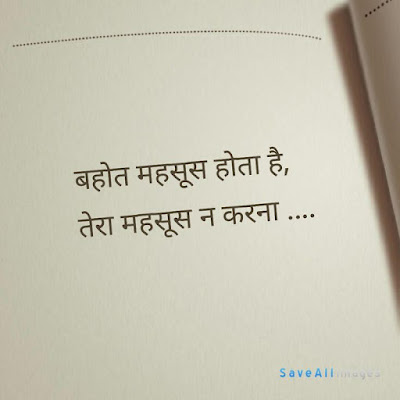 बहोत महसूस होता है,
तेरा महसूस न करना ....
SaveAllimages